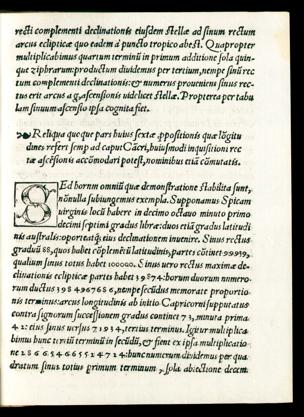 recti complementi declinationis eiusdem stellæ ad sinum rectum
arcus eclipticæ quo eadem á puncto tropico abest. Quapropter
multiplicabimus quartum terminũ in primum additione sola quin-
que ziphrarum: productum diuidemus per tertium, nempe sinũ rec
tum complementi declinationis: & numerus proueniens sinus rec-
tus erit arcus ascensionis videlicet stellæ. Propterea per tabu
lam sinuum ascensio ipsa cognita fiet.
Reliqua que que pars huius sextæ ppositionis quæ lõgitu
dines refert semp ad caput Cãcri, huiusmodi inquisitioni rec
tæ ascẽsionis accõmodari potest, nominibus etiã cõmutatis.
SEd horum omniũ quæ demonstratione stabilita sunt,
nõnulla subiungemus exempla. Supponamus Spicam
virginis locũ habere in decimo octauo minuto primo
decimi septimi gradus libræ: duos etiã gradus latitudi
nis australis: oporteatq́ eius declinationem inuenire. Sinus rectus
graduũ 88, quos habet cõplemẽtũ latitudinis, partes cõtinet 99939,
qualium sinus totus habet 100000. Sinus vero rectus maximæ de
clinationis eclipticæ partes habet 39874: horum duorum numero-
rum ductus 3984967686, nempe secũdus memoratæ proportio-
nis terminus: arcus longitudinis ab initio Capricorni supputatus
contra signorum successionem gradus continet 73, minuta prima
42: eius sinus versus 71934, tertius terminus. Igitur multiplica-
bimus hunc tertiũ terminũ in secũdũ, & fient ex ipsa multiplicatio
ne 286654665514724: hunc numerum diuidemus per qua
dratum sinus totius primum terminum, sola abiectione decem